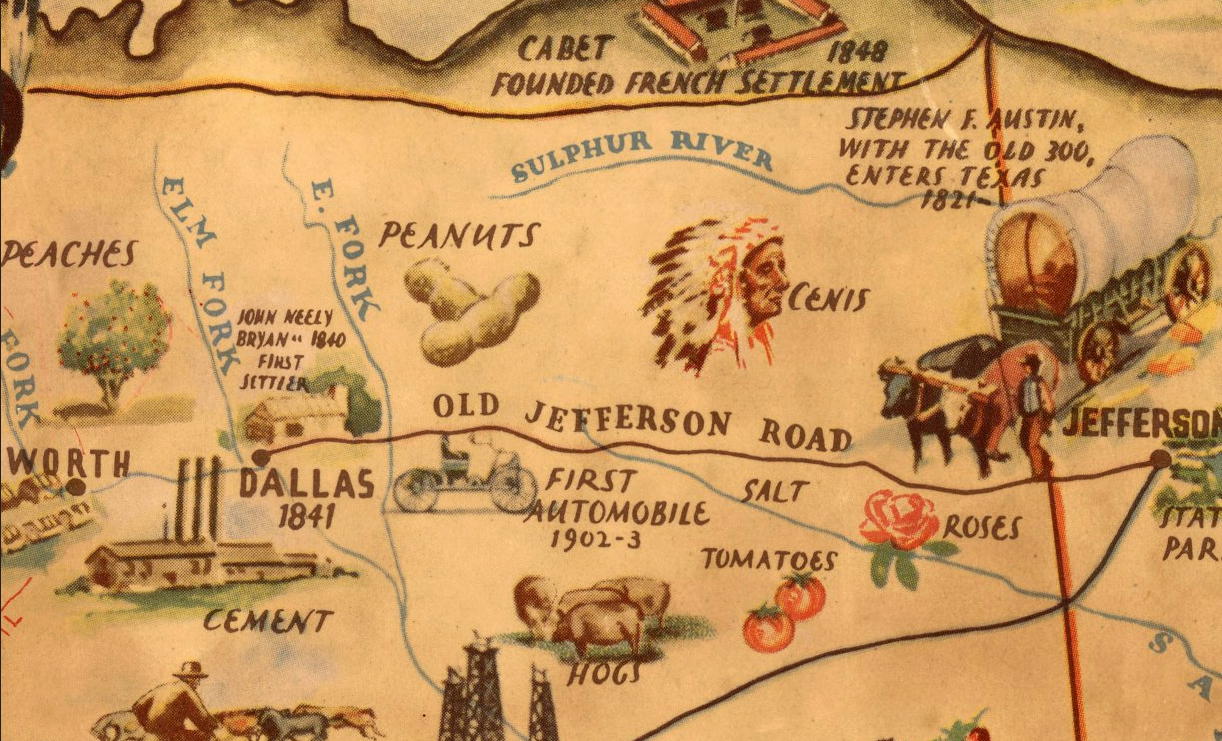 CABET 1848
FOUNDED FRENCH SETTLEMENT
STEPHEN F. AUSTIN,
WITH THE OLD 300,
ENTERS TEXAS
1821
SULPHUR RIVER
ELM FORK
E. FORK
PEANUTS
PEACHES
CENIS
JOHN NEELY
BRYAN 1840
FIRST
SETTLER
FORK
OLD JEFFERSON ROAD
JEFFERSON
WORTH
DALLAS
1841
FIRST
AUTOMOBILE
1902-3
SALT
ROSES
STAT
PAR
TOMATOES
CEMENT
HOGS
S A